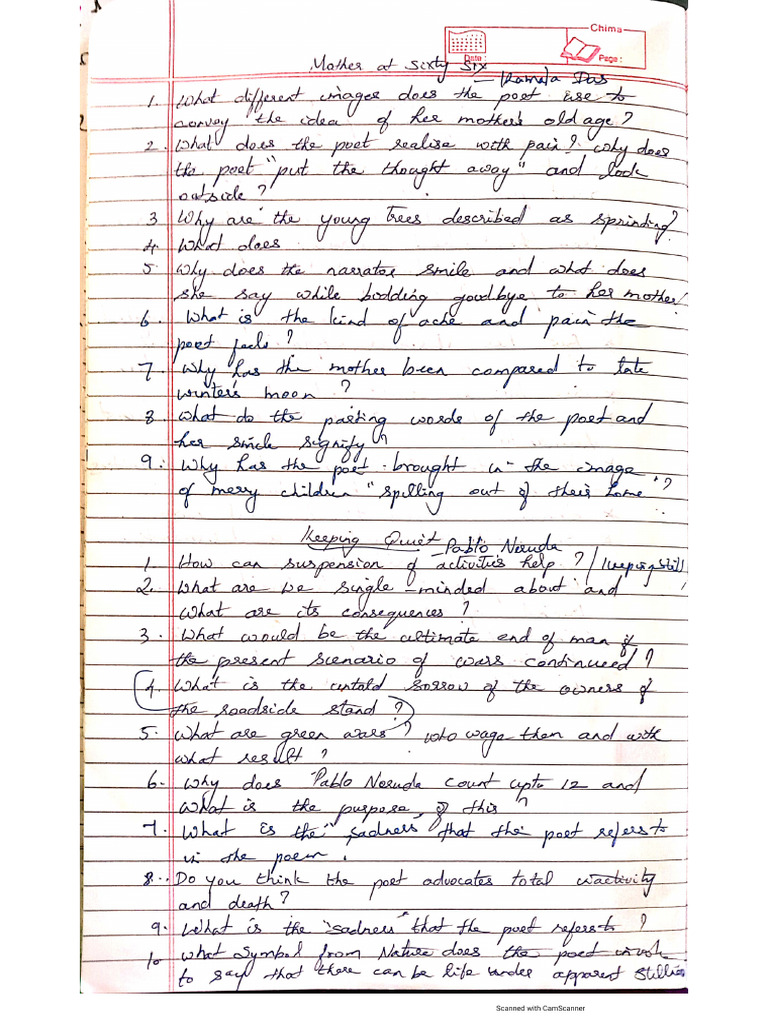 Chima
Date :
Page :
Mother at Sixty Six
- Kamala Das
1. What different images does the poet use to
convey the idea of her mother's old age?
2. What does the poet realise with pain? Why does
the poet "put the thought away" and look
outside?
3 Why are the young trees described as sprinting?
4. What does
5. Why does the narrator smile and what does
she say while bidding goodbye to her mother
6. What is the kind of ache and pain the
poet feels?
7. Why has the mother been compared to late
winter's moon?
8. What do the parting words of the poet and
her smile signify?
9. Why has the poet brought in the image
of merry children "spilling out of their home"?
Keeping Quiet
- Pablo Neruda
1. How can suspension of activities help? / keeping still
2. What are we single-minded about and
what are its consequences?
3. What would be the ultimate end of man if
the present scenario of wars continued?
4. What is the untold sorrow of the owners of
the roadside stand?
5. What are green wars? Who wage them and with
what result?
6. Why does Pablo Neruda count upto 12 and
what is the purpose of this?
7. What is the "sadness" that the poet refers to
in the poem.
8. Do you think the poet advocates total inactivity
and death?
9. What is the "sadness" that the poet refers to?
10 What symbol from Nature does the poet invok
to say that there can be life under apparent
Scanned with CamScanner